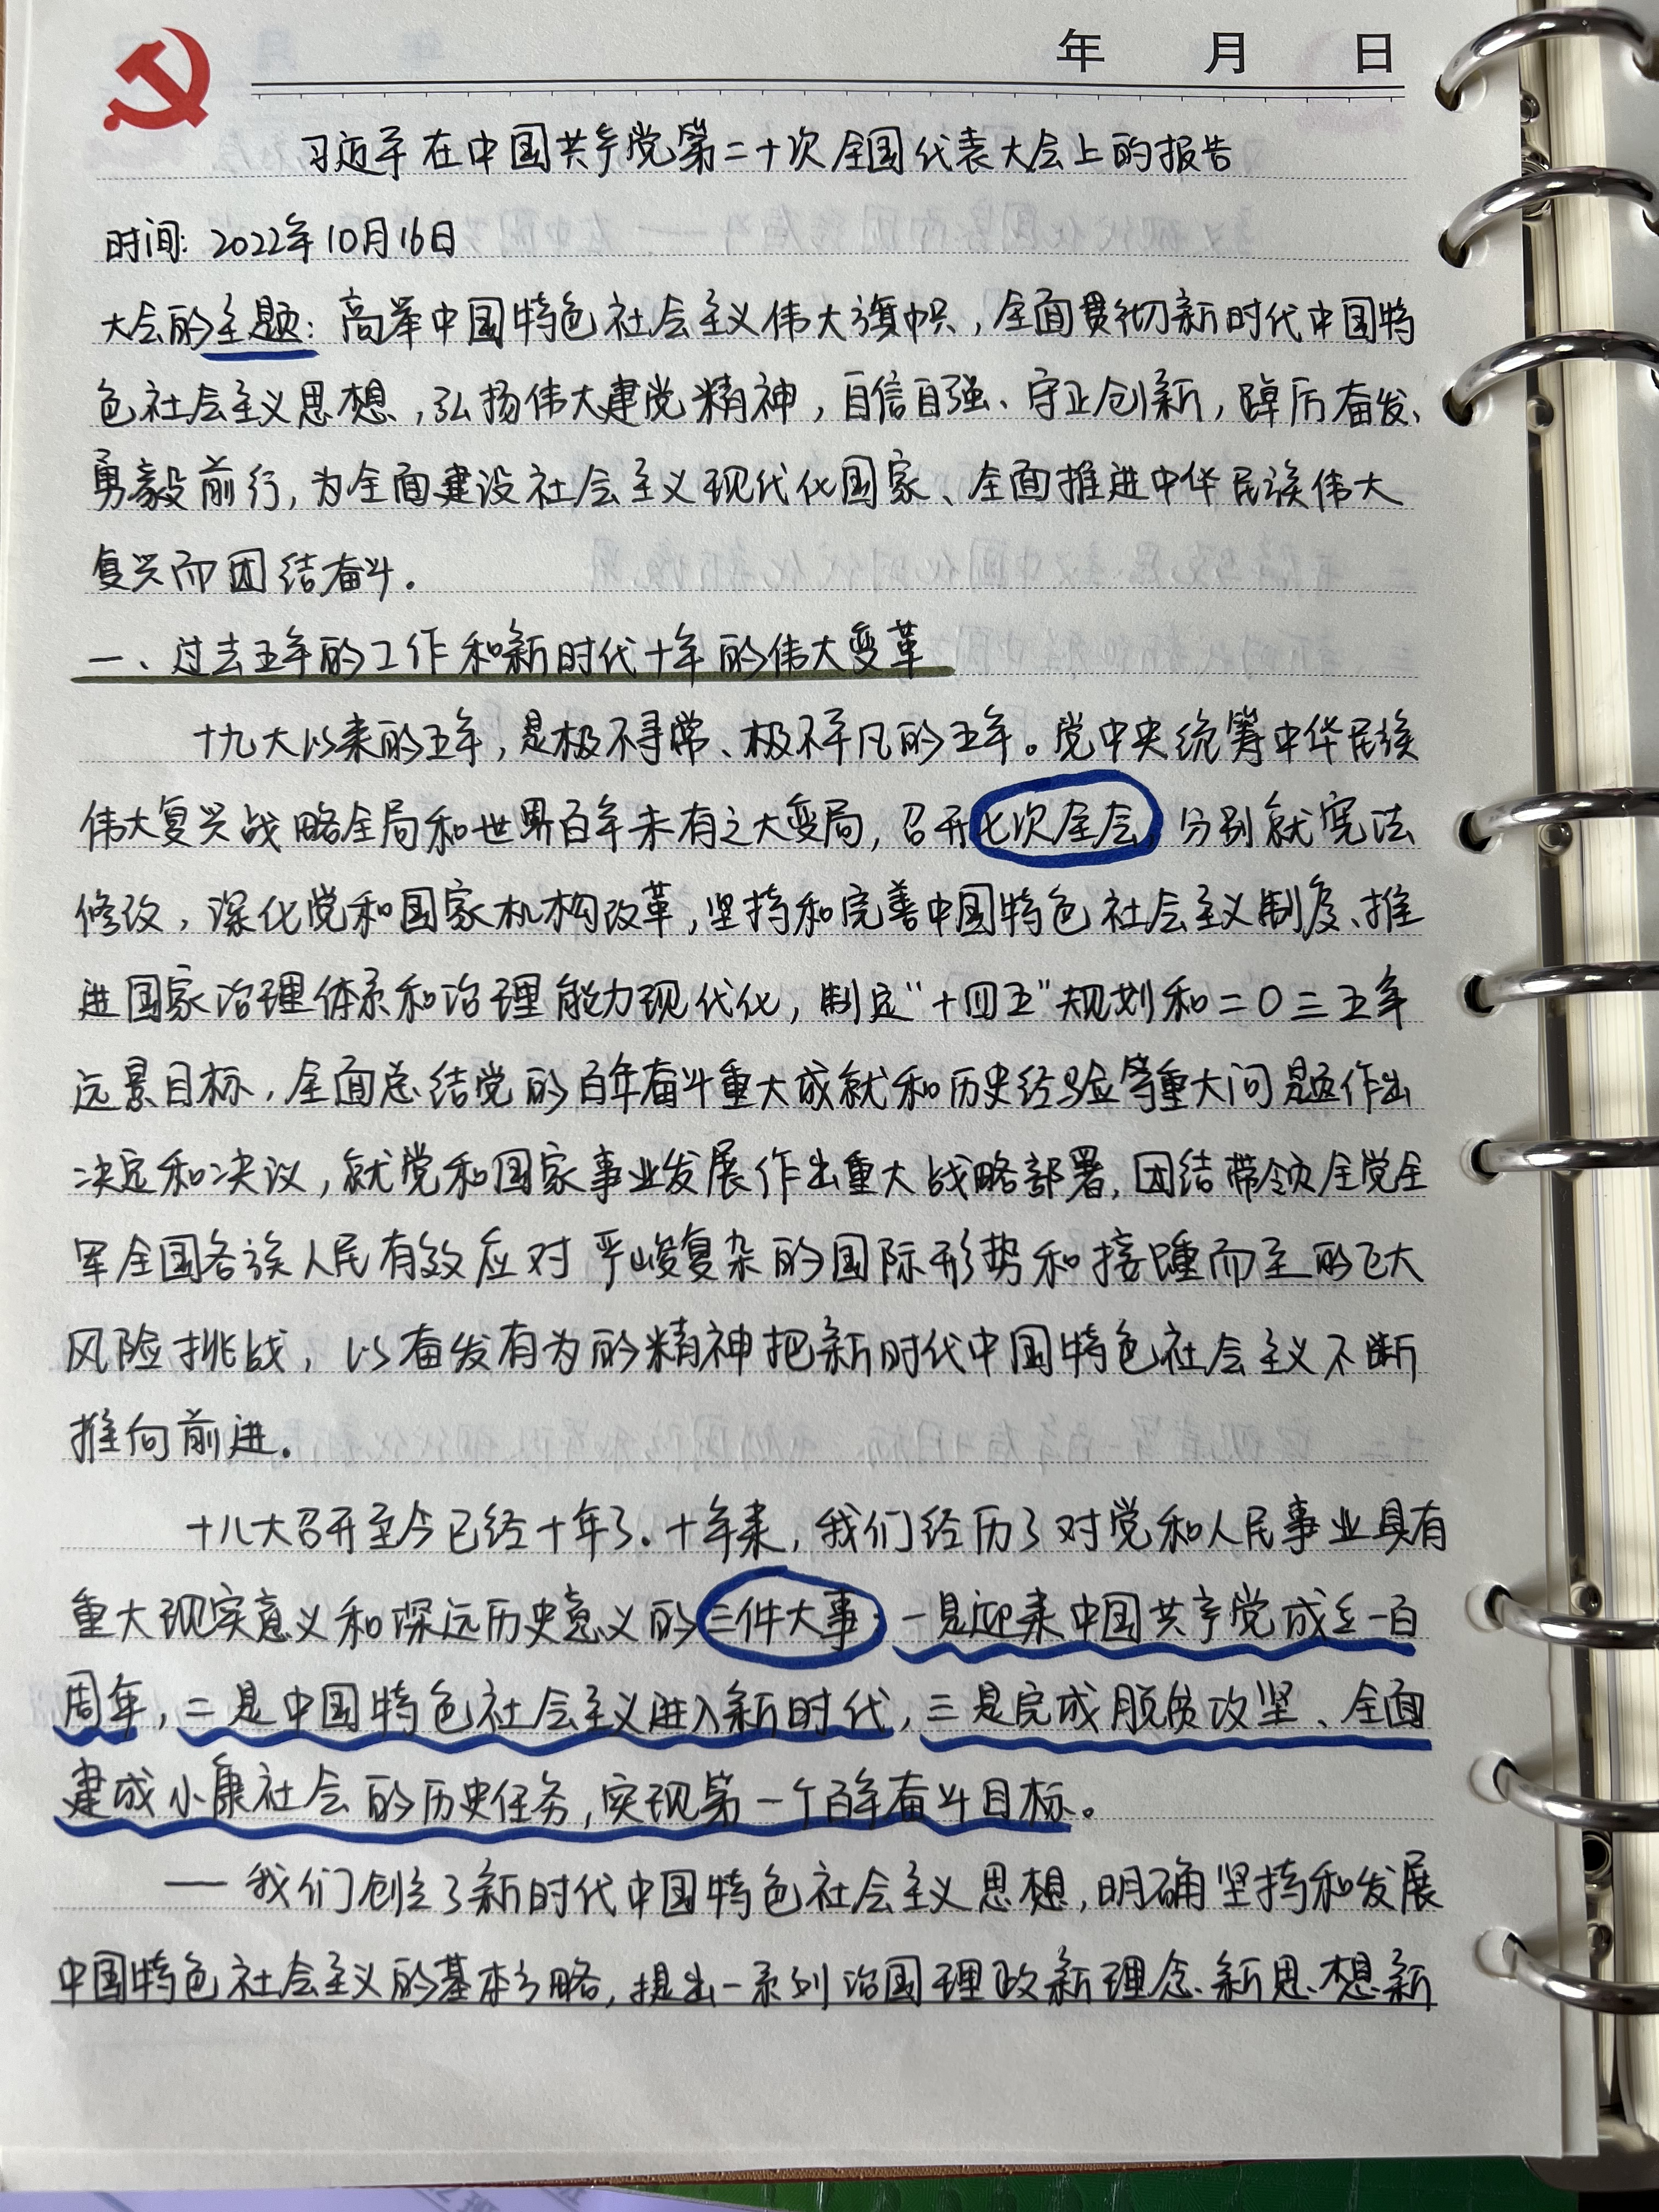 年 月 日
习近平在中国共产党第二十次全国代表大会上的报告
时间：2022年10月16日
大会的主题：高举中国特色社会主义伟大旗帜，全面贯彻新时代中国特
色社会主义思想，弘扬伟大建党精神，自信自强、守正创新，踔厉奋发、
勇毅前行，为全面建设社会主义现代化国家、全面推进中华民族伟大
复兴而团结奋斗.
一、过去五年的工作和新时代十年的伟大变革
十九大以来的五年，是极不寻常、极不平凡的五年。党中央统筹中华民族
伟大复兴战略全局和世界百年未有之大变局，召开七次全会，分别就宪法
修改，深化党和国家机构改革，坚持和完善中国特色社会主义制度、推
进国家治理体系和治理能力现代化，制定“十四五”规划和二〇三五年
远景目标，全面总结党的百年奋斗重大成就和历史经验等重大问题作出
决定和决议，就党和国家事业发展作出重大战略部署，团结带领全党全
军全国各族人民有效应对严峻复杂的国际形势和接踵而至的巨大
风险挑战，以奋发有为的精神把新时代中国特色社会主义不断
推向前进。
十八大召开至今已经十年了.十年来，我们经历了对党和人民事业具有
重大现实意义和深远历史意义的三件大事：一是迎来中国共产党成立一百
周年，二是中国特色社会主义进入新时代，三是完成脱贫攻坚、全面
建成小康社会的历史任务，实现第一个百年奋斗目标。
——我们创立了新时代中国特色社会主义思想，明确坚持和发展
中国特色社会主义的基本方略，提出一系列治国理政新理念、新思想、新